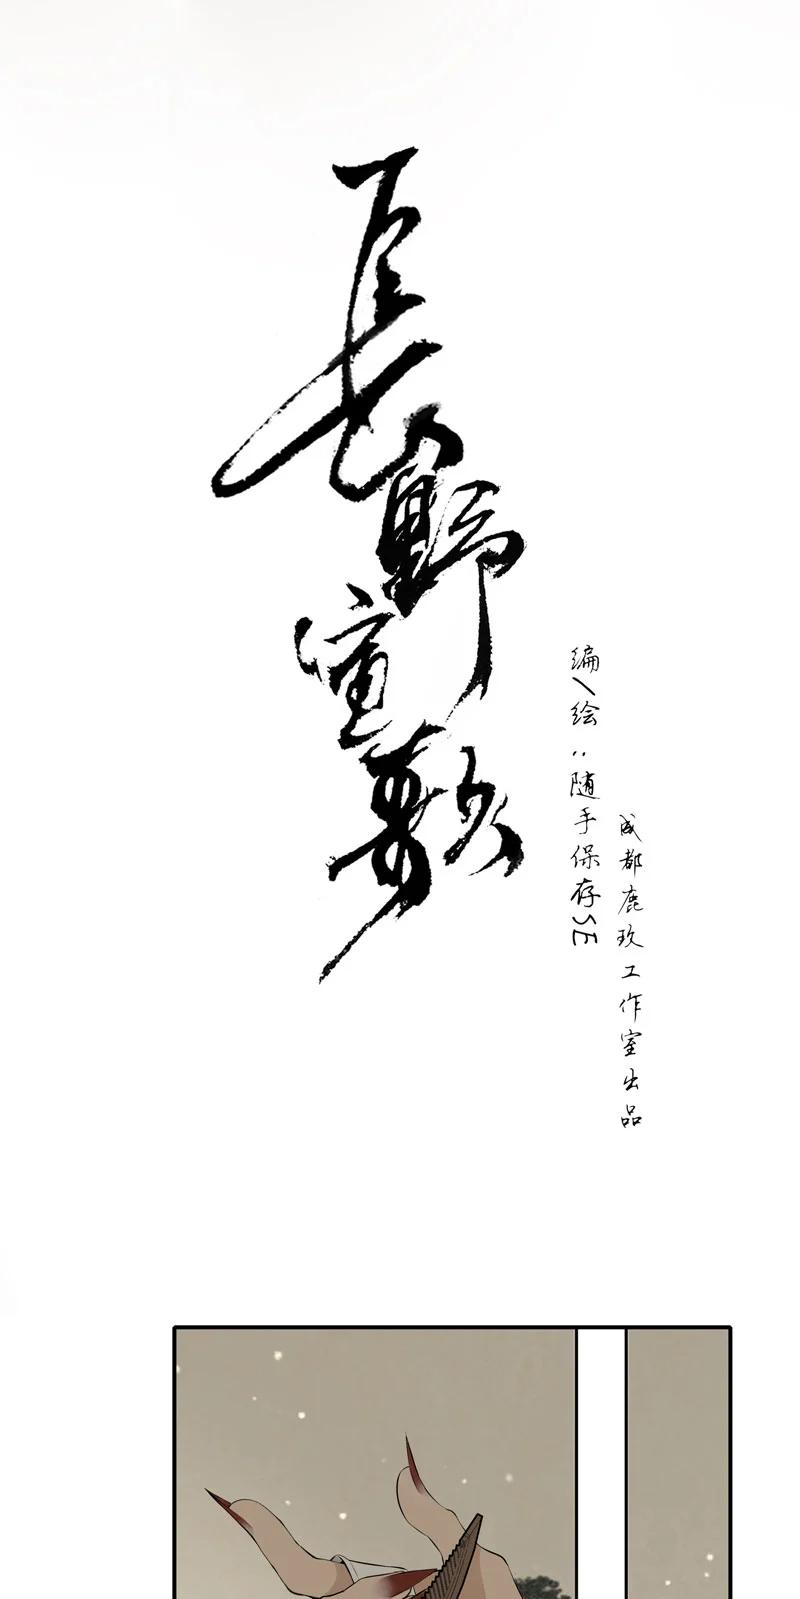 長野寔敷
编/绘:随手保存SE
成都鹿玖工作室出品